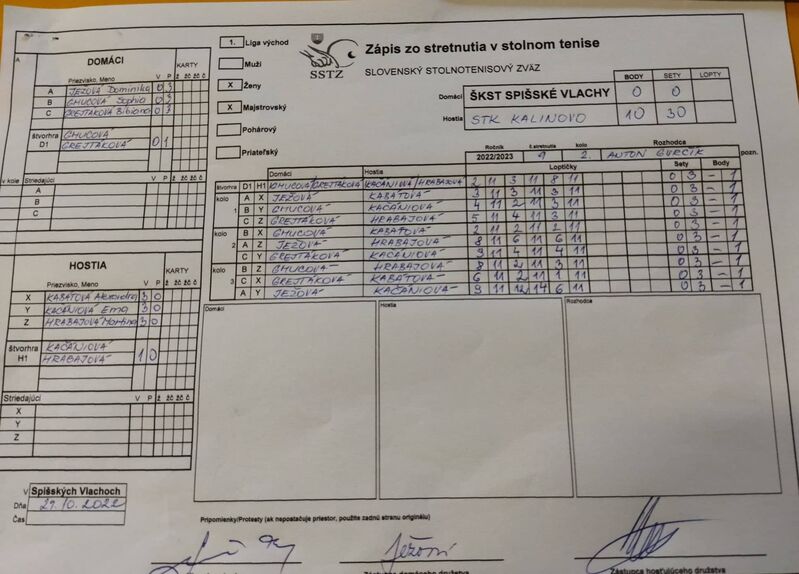 1. Liga východ
Muži
X Ženy
X Majstrovský
Pohárový
Priateľský
SSTZ
Zápis zo stretnutia v stolnom tenise
SLOVENSKÝ STOLNOTENISOVÝ ZVÄZ
BODY SETY LOPTY
Domáci ŠKST SPIŠSKÉ VLACHY 0 0
Hostia STK KALINOVO 10 30
Ročník č.stretnutia kolo Rozhodca
2022/2023 9 2. ANTON GURČÍK pozn.
A DOMÁCI KARTY
Priezvisko, Meno V P ž žč žč č
A JEŽOVÁ Dominika 0 3
B CHUCOVÁ Sophia 0 3
C GREJTÁKOVÁ Bibiana 0 3
štvorhra CHUCOVÁ
D1 GREJTÁKOVÁ 0 1
v kole Striedajúci
A
B
C
HOSTIA KARTY
Priezvisko, Meno V P ž žč žč č
X KABÁTOVÁ 3 0
Y KAČÁNIOVÁ Ema 3 0
Z HRABAJOVÁ Martina 3 0
štvorhra KAČÁNIOVÁ
H1 HRABAJOVÁ 1 0
Striedajúci ž žč žč č
X
Y
Z
V Spišských Vlachoch
Dňa 29.10.2022
Čas
Domáci Hostia Loptičky Sety Body
štvorhra D1 H1 CHUCOVÁ/GREJTÁKOVÁ KAČÁNIOVÁ/HRABAJOVÁ 2 11 3 11 8 11 0 3 – 1
kolo A X JEŽOVÁ KABÁTOVÁ 3 11 3 11 3 11 0 3 – 1
1 B Y CHUCOVÁ KAČÁNIOVÁ 4 11 2 11 3 11 0 3 – 1
C Z GREJTÁKOVÁ HRABAJOVÁ 5 11 4 11 3 11 0 3 – 1
kolo B X CHUCOVÁ KABÁTOVÁ 2 11 2 11 2 11 0 3 – 1
2 A Z JEŽOVÁ HRABAJOVÁ 8 11 6 11 6 11 0 3 – 1
C Y GREJTÁKOVÁ KAČÁNIOVÁ 9 11 4 11 4 11 0 3 – 1
kolo B Z CHUCOVÁ HRABAJOVÁ 8 11 2 11 3 11 0 3 – 1
3 C X GREJTÁKOVÁ KABÁTOVÁ 6 11 2 11 1 11 0 3 – 1
A Y JEŽOVÁ KAČÁNIOVÁ 9 11 12 14 6 11 0 3 – 1
Domáci Hostia Rozhodca
Pripomienky/Protesty (ak nepostačuje priestor, použite zadnú stranu originálu)
Ježová
Zástupca domáceho družstva Zástupca hosťujúceho družstva